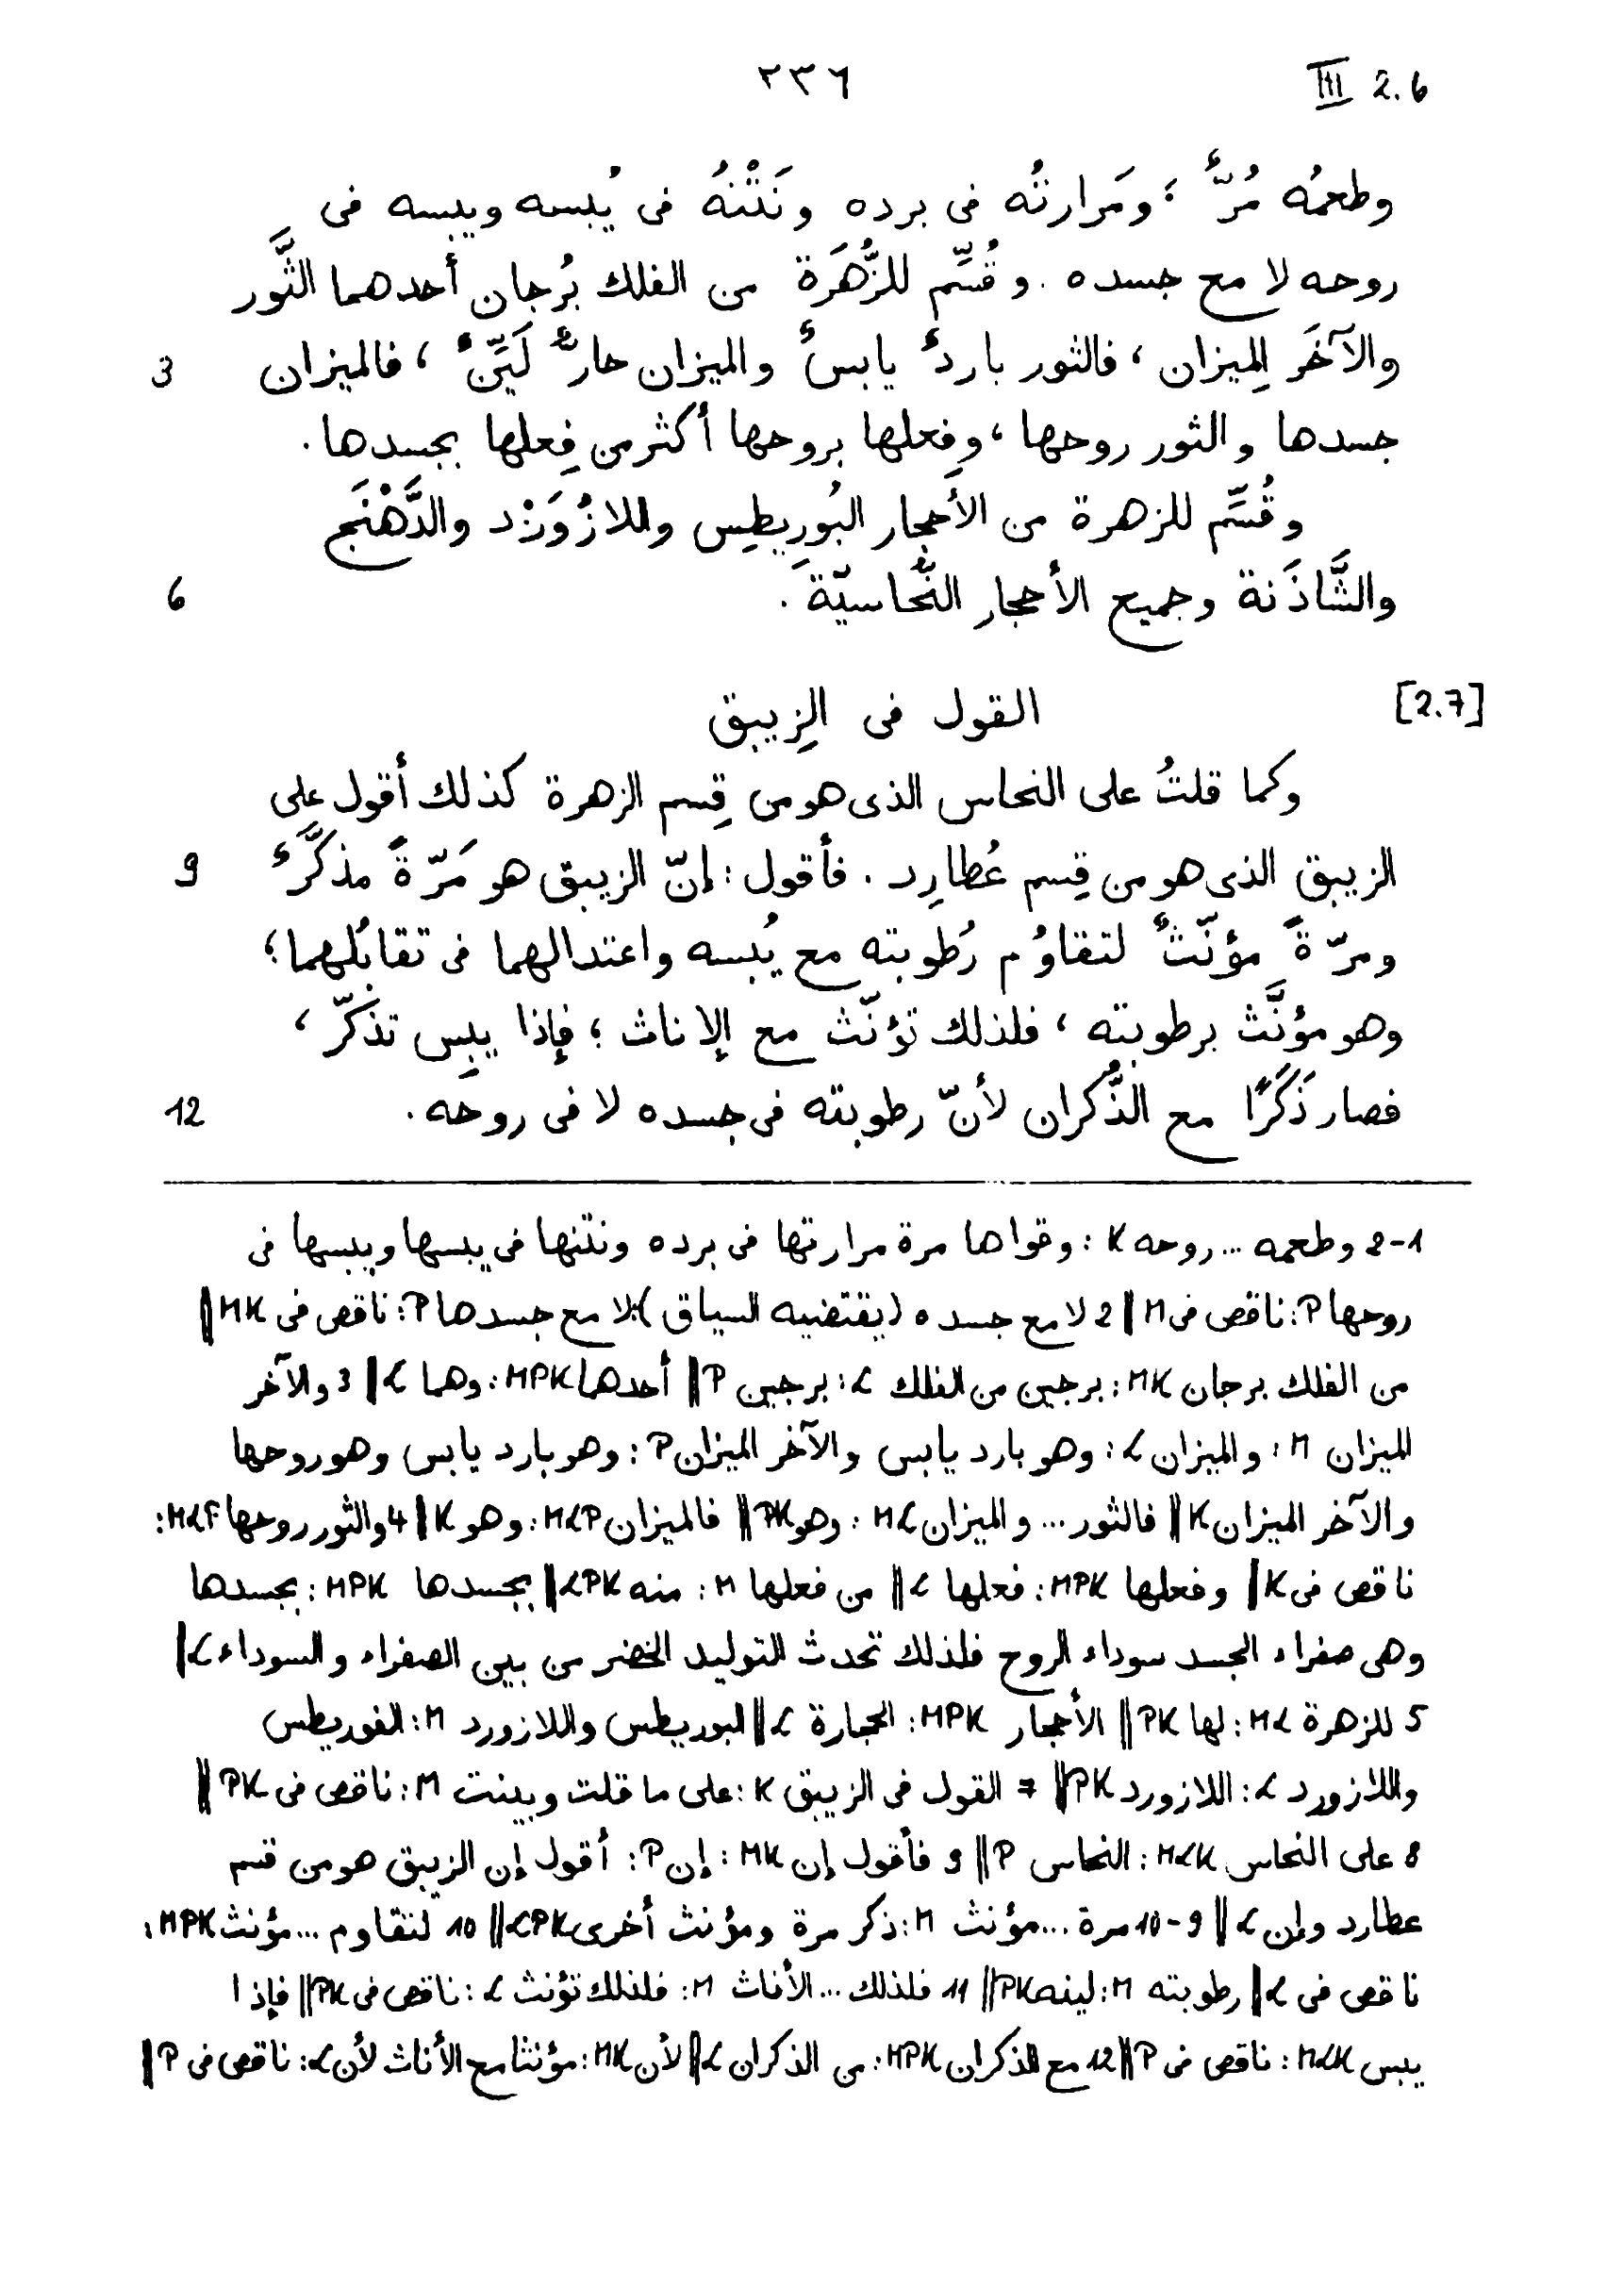 ٢٣٦ III 2.6
وطعمُه مُرٌّ ؛ ومَرارتُه فى برده ونَتْنُهُ فى يُبسه ويبسه فى
روحه لا مع جسده . وقُسِّم للزُّهَرَة من الفلك بُرجان أحدهما الثَّور
والآخَر المِيزان ، فالثور باردٌ يابسٌ والميزان حارٌّ لَيِّنٌ ، فالميزان 3
جسدها والثور روحها ، وفِعلها بروحها أكثر من فِعلها بجسدها .
وقُسِّم للزهرة من الأحجار البُورِيطِس واللازُوَرْد والدَّهْنَج
والشَّاذَنة وجميع الأحجار النُّحاسيّة . 6
[2.7] القول فى الزِيبق
وكما قلتُ على النحاس الذى هو من قِسم الزهرة كذلك أقول على
الزيبق الذى هو من قِسم عُطارِد . فأقول : إنّ الزيبق هو مَرّةً مذكَّرٌ 9
ومرّةً مؤنّثٌ لتقاوُم رُطوبته مع يُبسه واعتدالهما فى تقابُلهما ؛
وهو مؤنَّث برطوبته ، فلذلك تؤنّث مع الإناث ؛ فإذا يبِس تذكّر ،
فصار ذَكَرًا مع الذُّكران لأنّ رطوبته فى جسده لا فى روحه . 12
1-2 وطعمه ... روحه K : وقواها مرة مرارتها فى برده ونتنها فى يبسها ويبسها فى
روحها P : ناقص فى M || 2 لا مع جسده (يقتضيه السياق) : لا مع جسدها P : ناقص فى MK ||
من الفلك برجان MK : برجين من الفلك L : برجين P || أحدهما MPK : وهما L || 3 والآخر
الميزان M : والميزان L : وهو بارد يابس والآخر الميزان P : وهو بارد يابس وهو روحها
والآخر الميزان K || فالثور ... والميزان ML : وهو PK || فالميزان MLP : وهو K || 4 والثور روحها MLP :
ناقص فى K || وفعلها MPK : فعلها L || من فعلها M : منه LPK || بجسدها MPK : بجسدها
وهى صفراء الجسد سوداء الروح فلذلك تحدث التوليد الخضر من بين الصفراء والسوداء L ||
5 للزهرة ML : لها PK || الأحجار MPK : الحجارة L || البوريطس واللازورد M : الفوريطس
واللازورد L : اللازورد PK || 7 القول فى الزيبق K : على ما قلت وبينت M : ناقص فى PK ||
8 على النحاس MLK : النحاس P || 9 فأقول إن MK : إن P : أقول إن الزيبق هو من قسم
عطارد وإن L || 9-10 مرة ... مؤنث M : ذكر مرة ومؤنث أخرى LPK || 10 لتقاوم ... مؤنث MPK :
ناقص فى L || رطوبته M : لينه PK || 11 فلذلك ... الأناث M : فلذلك تؤنث L : ناقص فى PK || فإذا
يبس MLK : ناقص فى P || 12 مع الذكران MPK : من الذكران L || لأن MK : مؤنثا مع الأناث لأن L : ناقص فى P ||